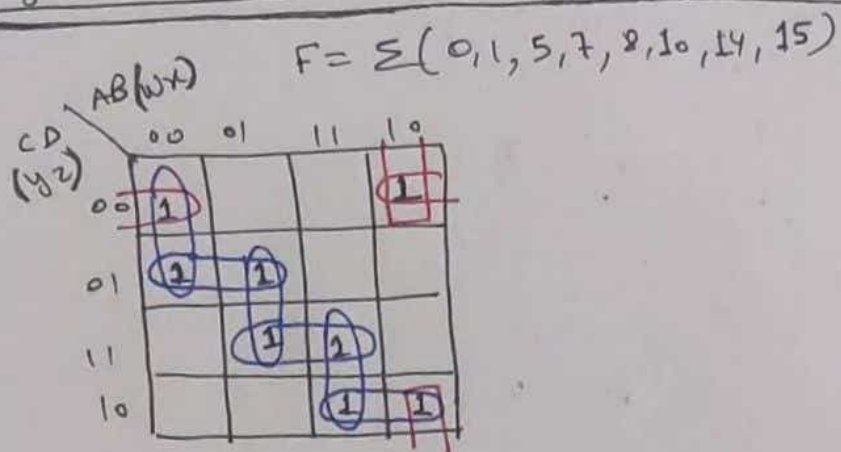 F = Σ(0,1,5,7,8,10,14,15)
AB(wx)
CD
(yz)
00 01 11 10
00 1 1
01 1 1
11 1 1
10 1 1